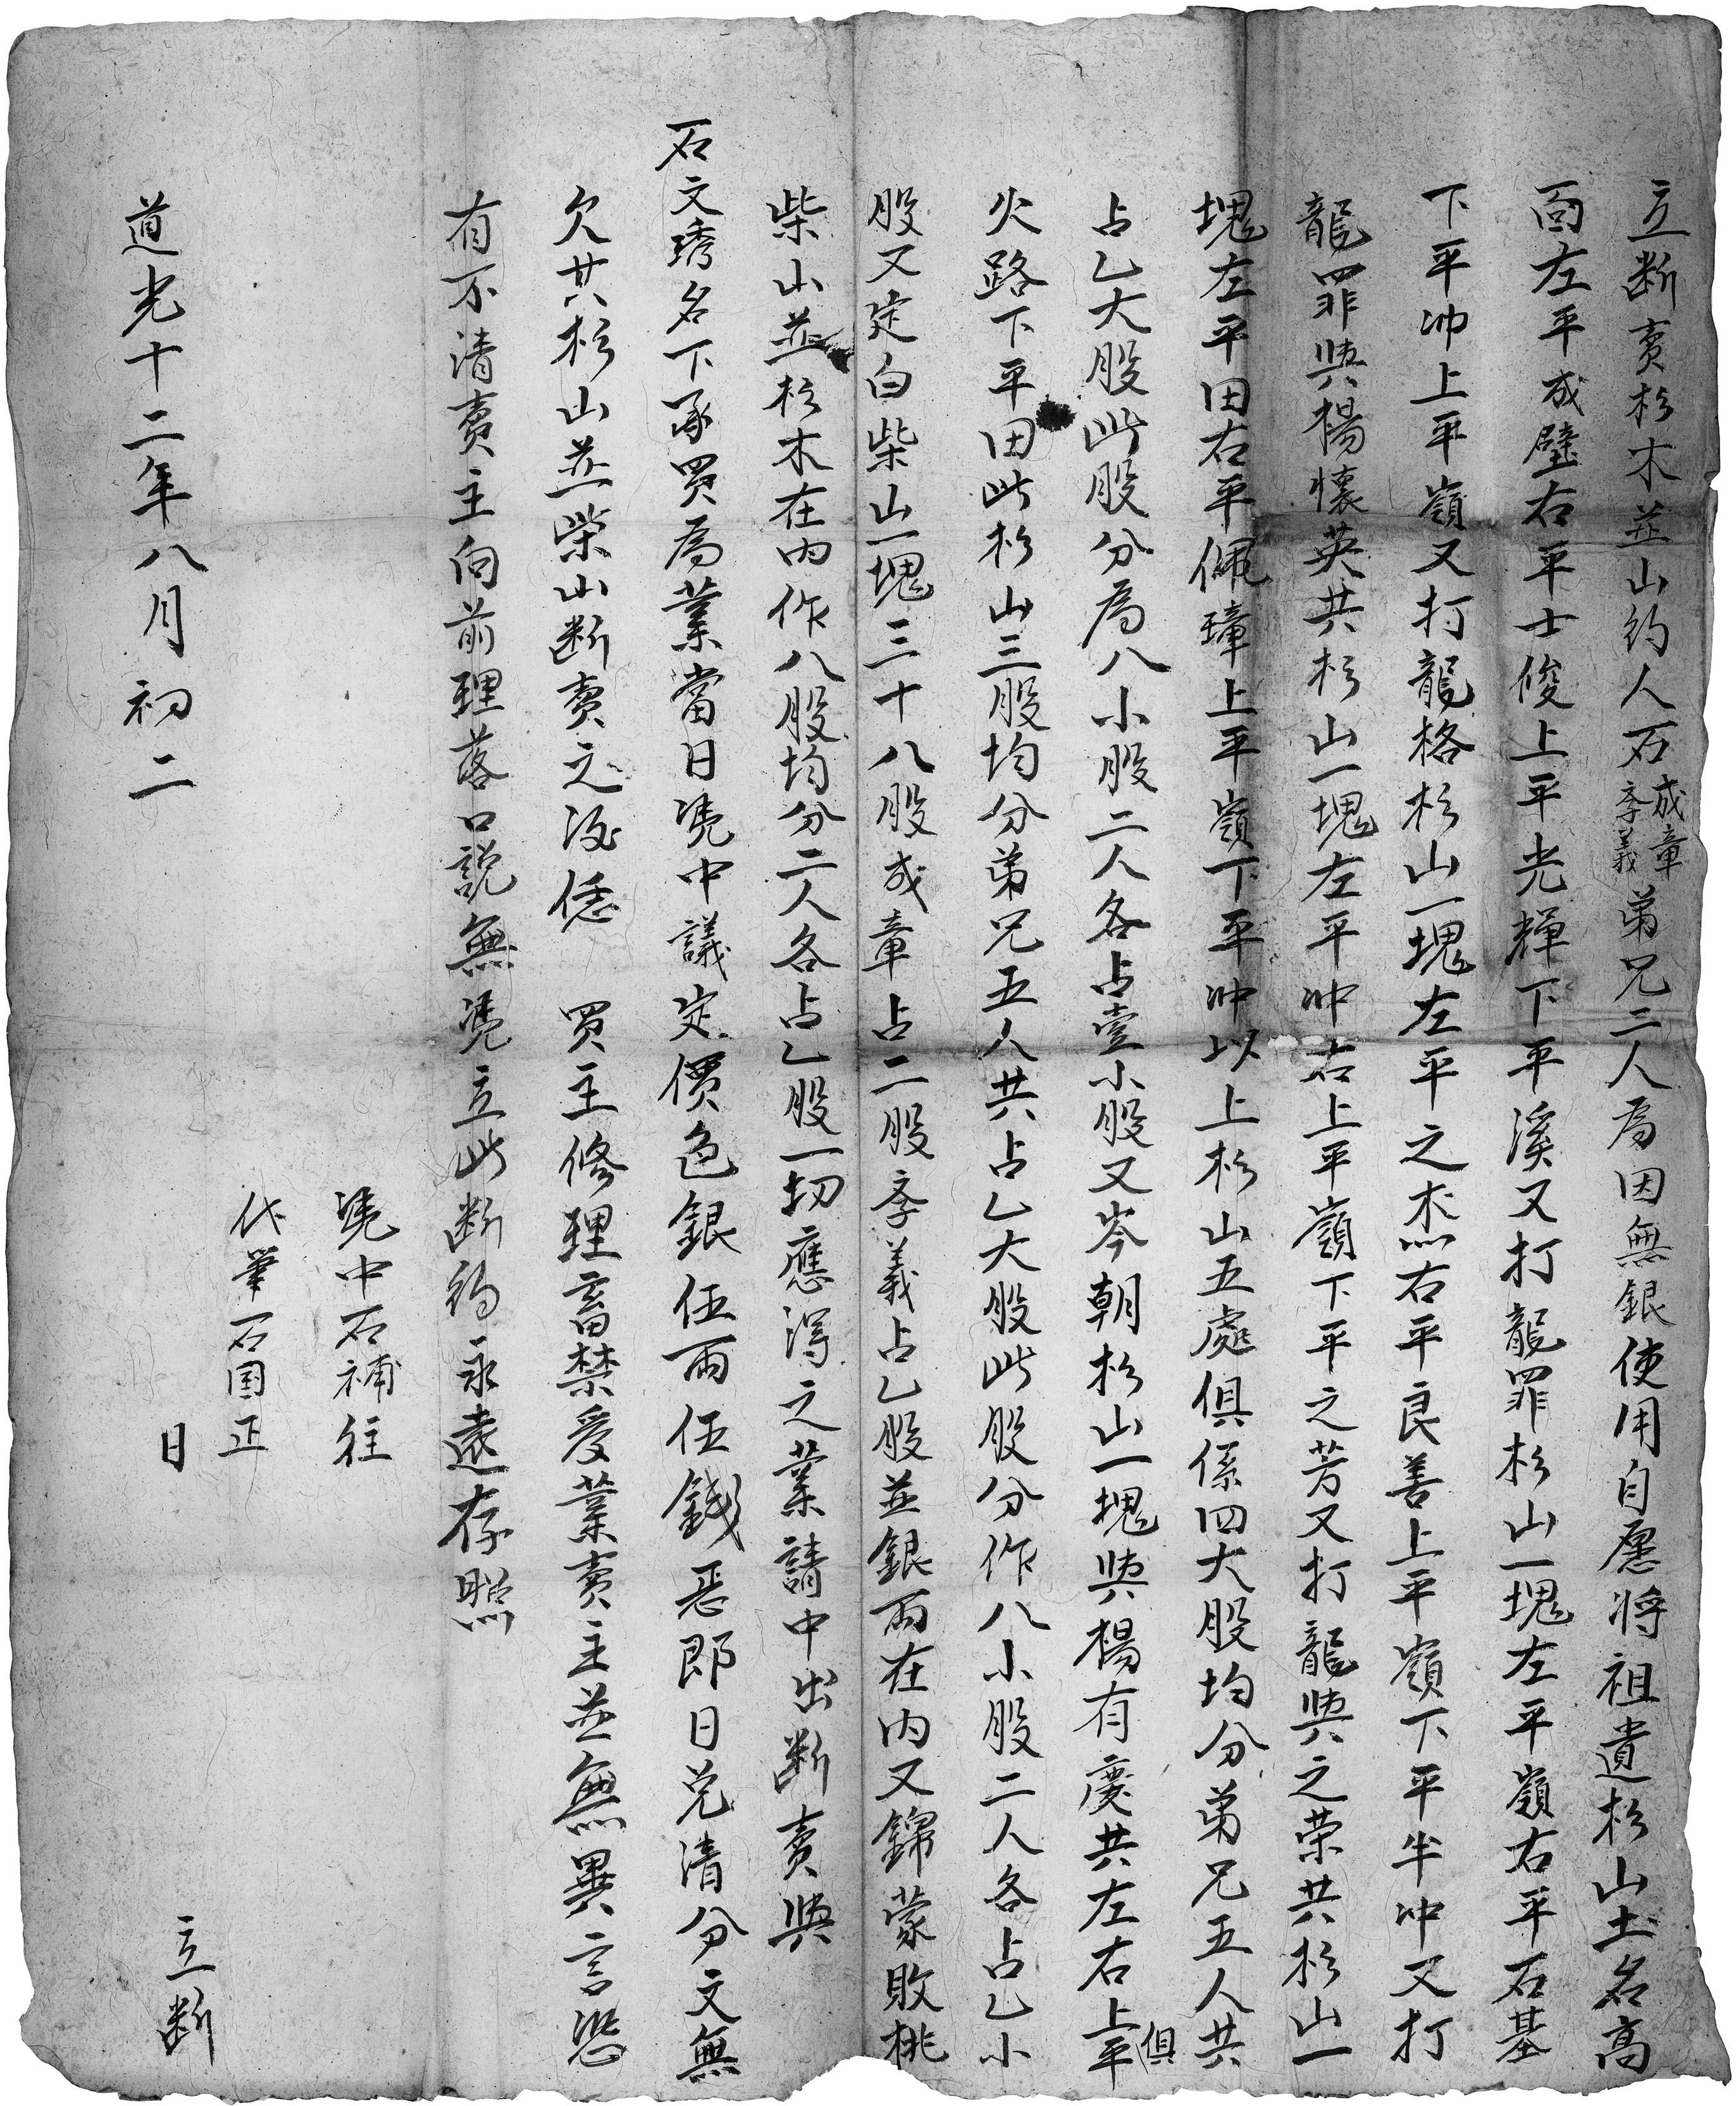 立断賣杉木並山約人石成章季義弟兄二人為因無銀使用自愿將祖遺杉山土名高
面左平成璧右平士俊上平光輝下平溪又打龍罪杉山一塊左平嶺右平石基
下平冲上平嶺又打龍格杉山一塊左平之杰右平良善上平嶺下平半冲又打
龍罪與楊懷英共杉山一塊左平冲右上平嶺下平之芳又打龍與之荣共杉山一
塊左平田右平佩璋上平嶺下平冲以上杉山五處俱係四大股均分弟兄五人共
占乙大股此股分為八小股二人各占壹小股又岑朝杉山一塊與楊有慶共左右上平俱
火路下平田此杉山三股均分弟兄五人共占乙大股此股分作八小股二人各占乙小
股又定白柴山一塊三十八股成章占二股季義占乙股並銀両在内又錦蒙敗桃
柴山並杉木在内作八股均分二人各占乙股一切應得之業請中出断賣與
石文琇名下承買為業當日凴中議定價色銀伍両伍錢恁即日兑清分文無
欠其杉山並柴山断賣之後恁買主修理畜禁受業賣主並無異言恐
有不清賣主向前理落口説無凴立此断約永遠存照
凴中石補往
代筆石国正
道光十二年八月初二日立断